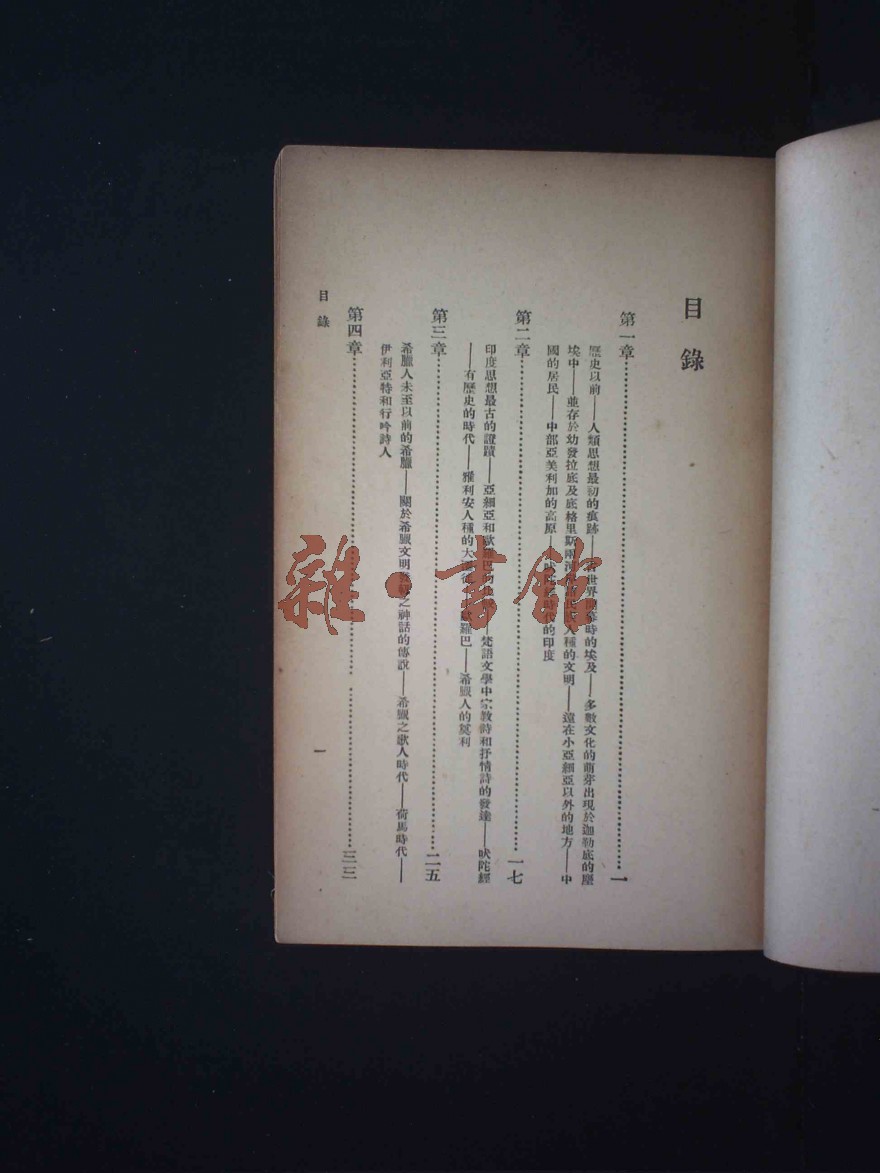 目錄
第一章……一
歷史以前——人類思想最初的痕跡——世界開幕時的埃及——多數文化的萌芽出現於迦勒底的塵
埃中——並存於幼發拉底及底格里斯兩河人種的文明——遠在小亞細亞以外的地方——中
國的居民——中部亞美利加的高原——時代的印度
第二章……一七
印度思想最古的證蹟——亞細亞和歐羅巴——梵語文學中宗教詩和抒情詩的發達——吠陀經
——有歷史的時代——雅利安人種的大歐羅巴——希臘人的奠利
第三章……二五
希臘人未至以前的希臘——關於希臘文明之神話的傳說——希臘之歌人時代——荷馬時代——
伊利亞特和行吟詩人
第四章……三三
目錄
一
雜·書館